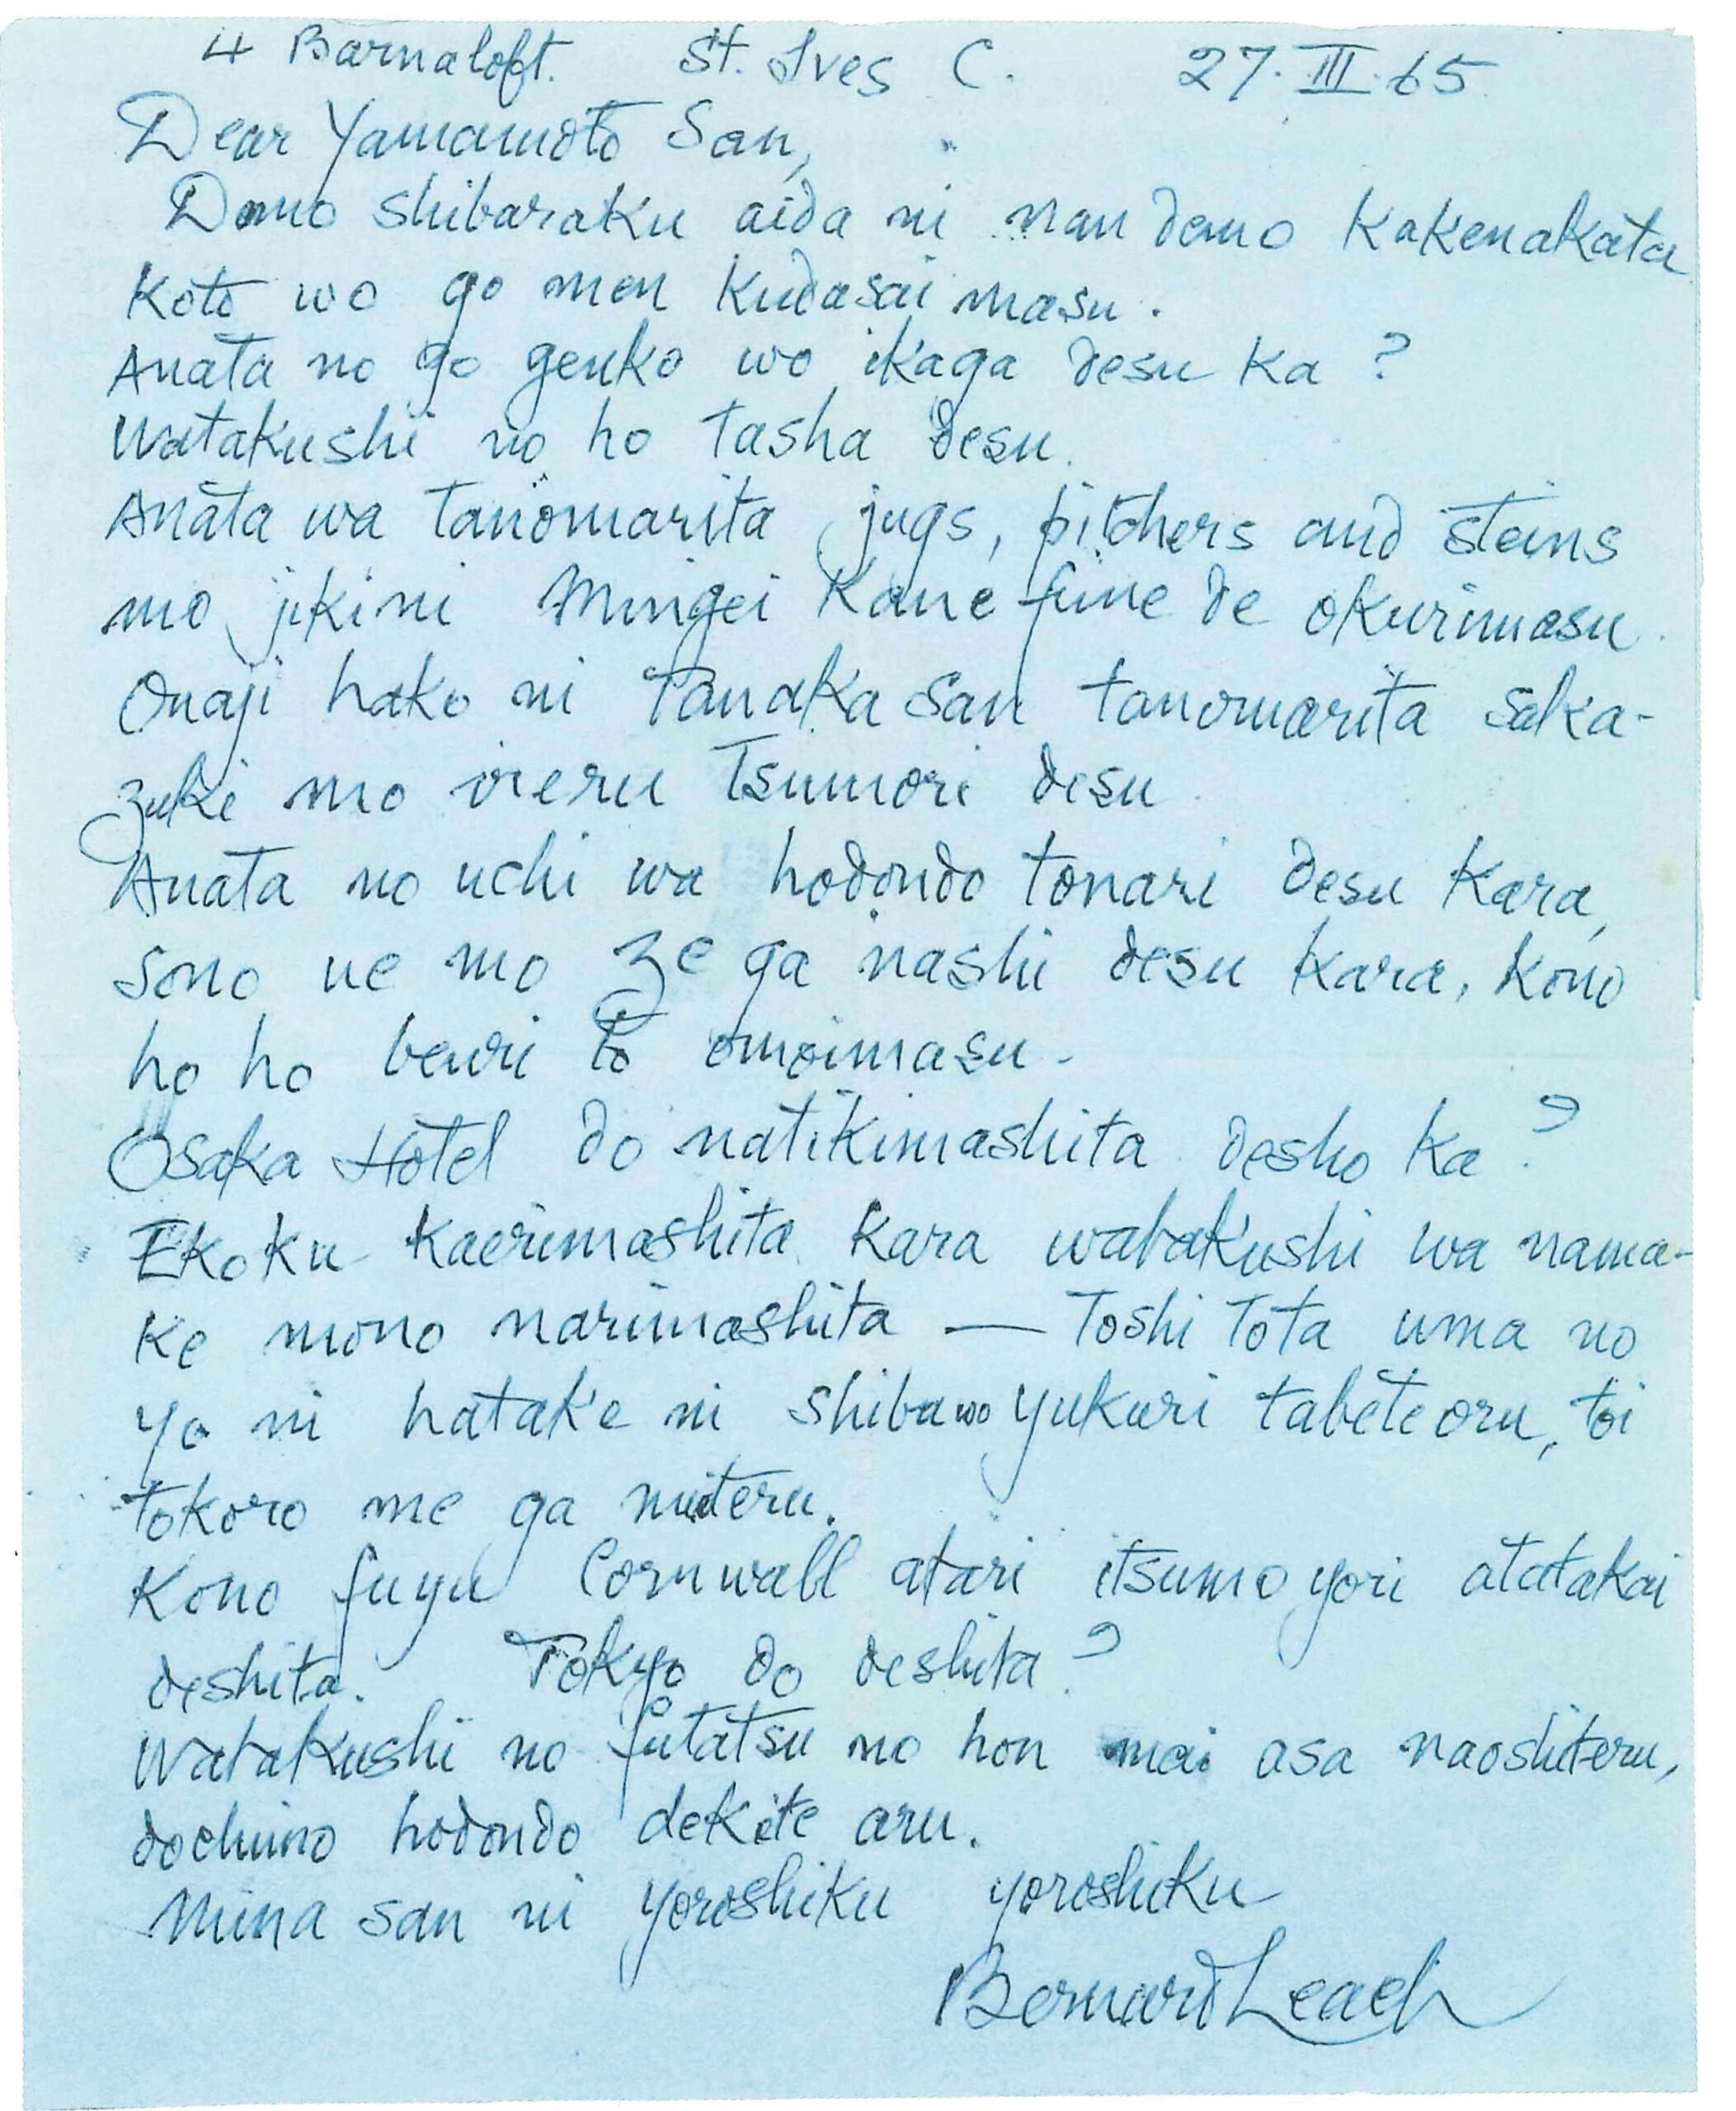 4 Barnaloft. St. Ives C. 27. III. 65
Dear Yamamoto San,
Domo shibaraku aida ni nan demo kakenakata
koto wo go men kudasai masu.
Anata no go genko wo ikaga desu ka?
Watakushi no ho tasha desu.
Anata wa tanomarita jugs, pitchers and steins
mo jikini Mingei Kane fune de okurimasu.
Onaji hako ni Tanaka San tanomarita saka-
zuki mo ireru tsumori desu.
Anata no uchi wa hodondo tonari desu kara,
sono ue mo ze ga nashi desu kara, kono
ho ho benri to omoimasu.
Osaka Hotel do natikimashita desho ka?
Ekoku kaerimashita kara watakushi wa nama-
ke mono narimashita — Toshi tota uma no
yo ni hatake ni shiba wo yukuri tabete oru, toi
tokoro me ga miteru.
Kono fuyu Cornwall atari itsumo yori atatakai
deshita. Tokyo do deshita?
Watakushi no futatsu no hon mai asa naoshiteru,
dochimo hodondo dekite aru.
Mina san ni yoroshiku yoroshiku
Bernard Leach